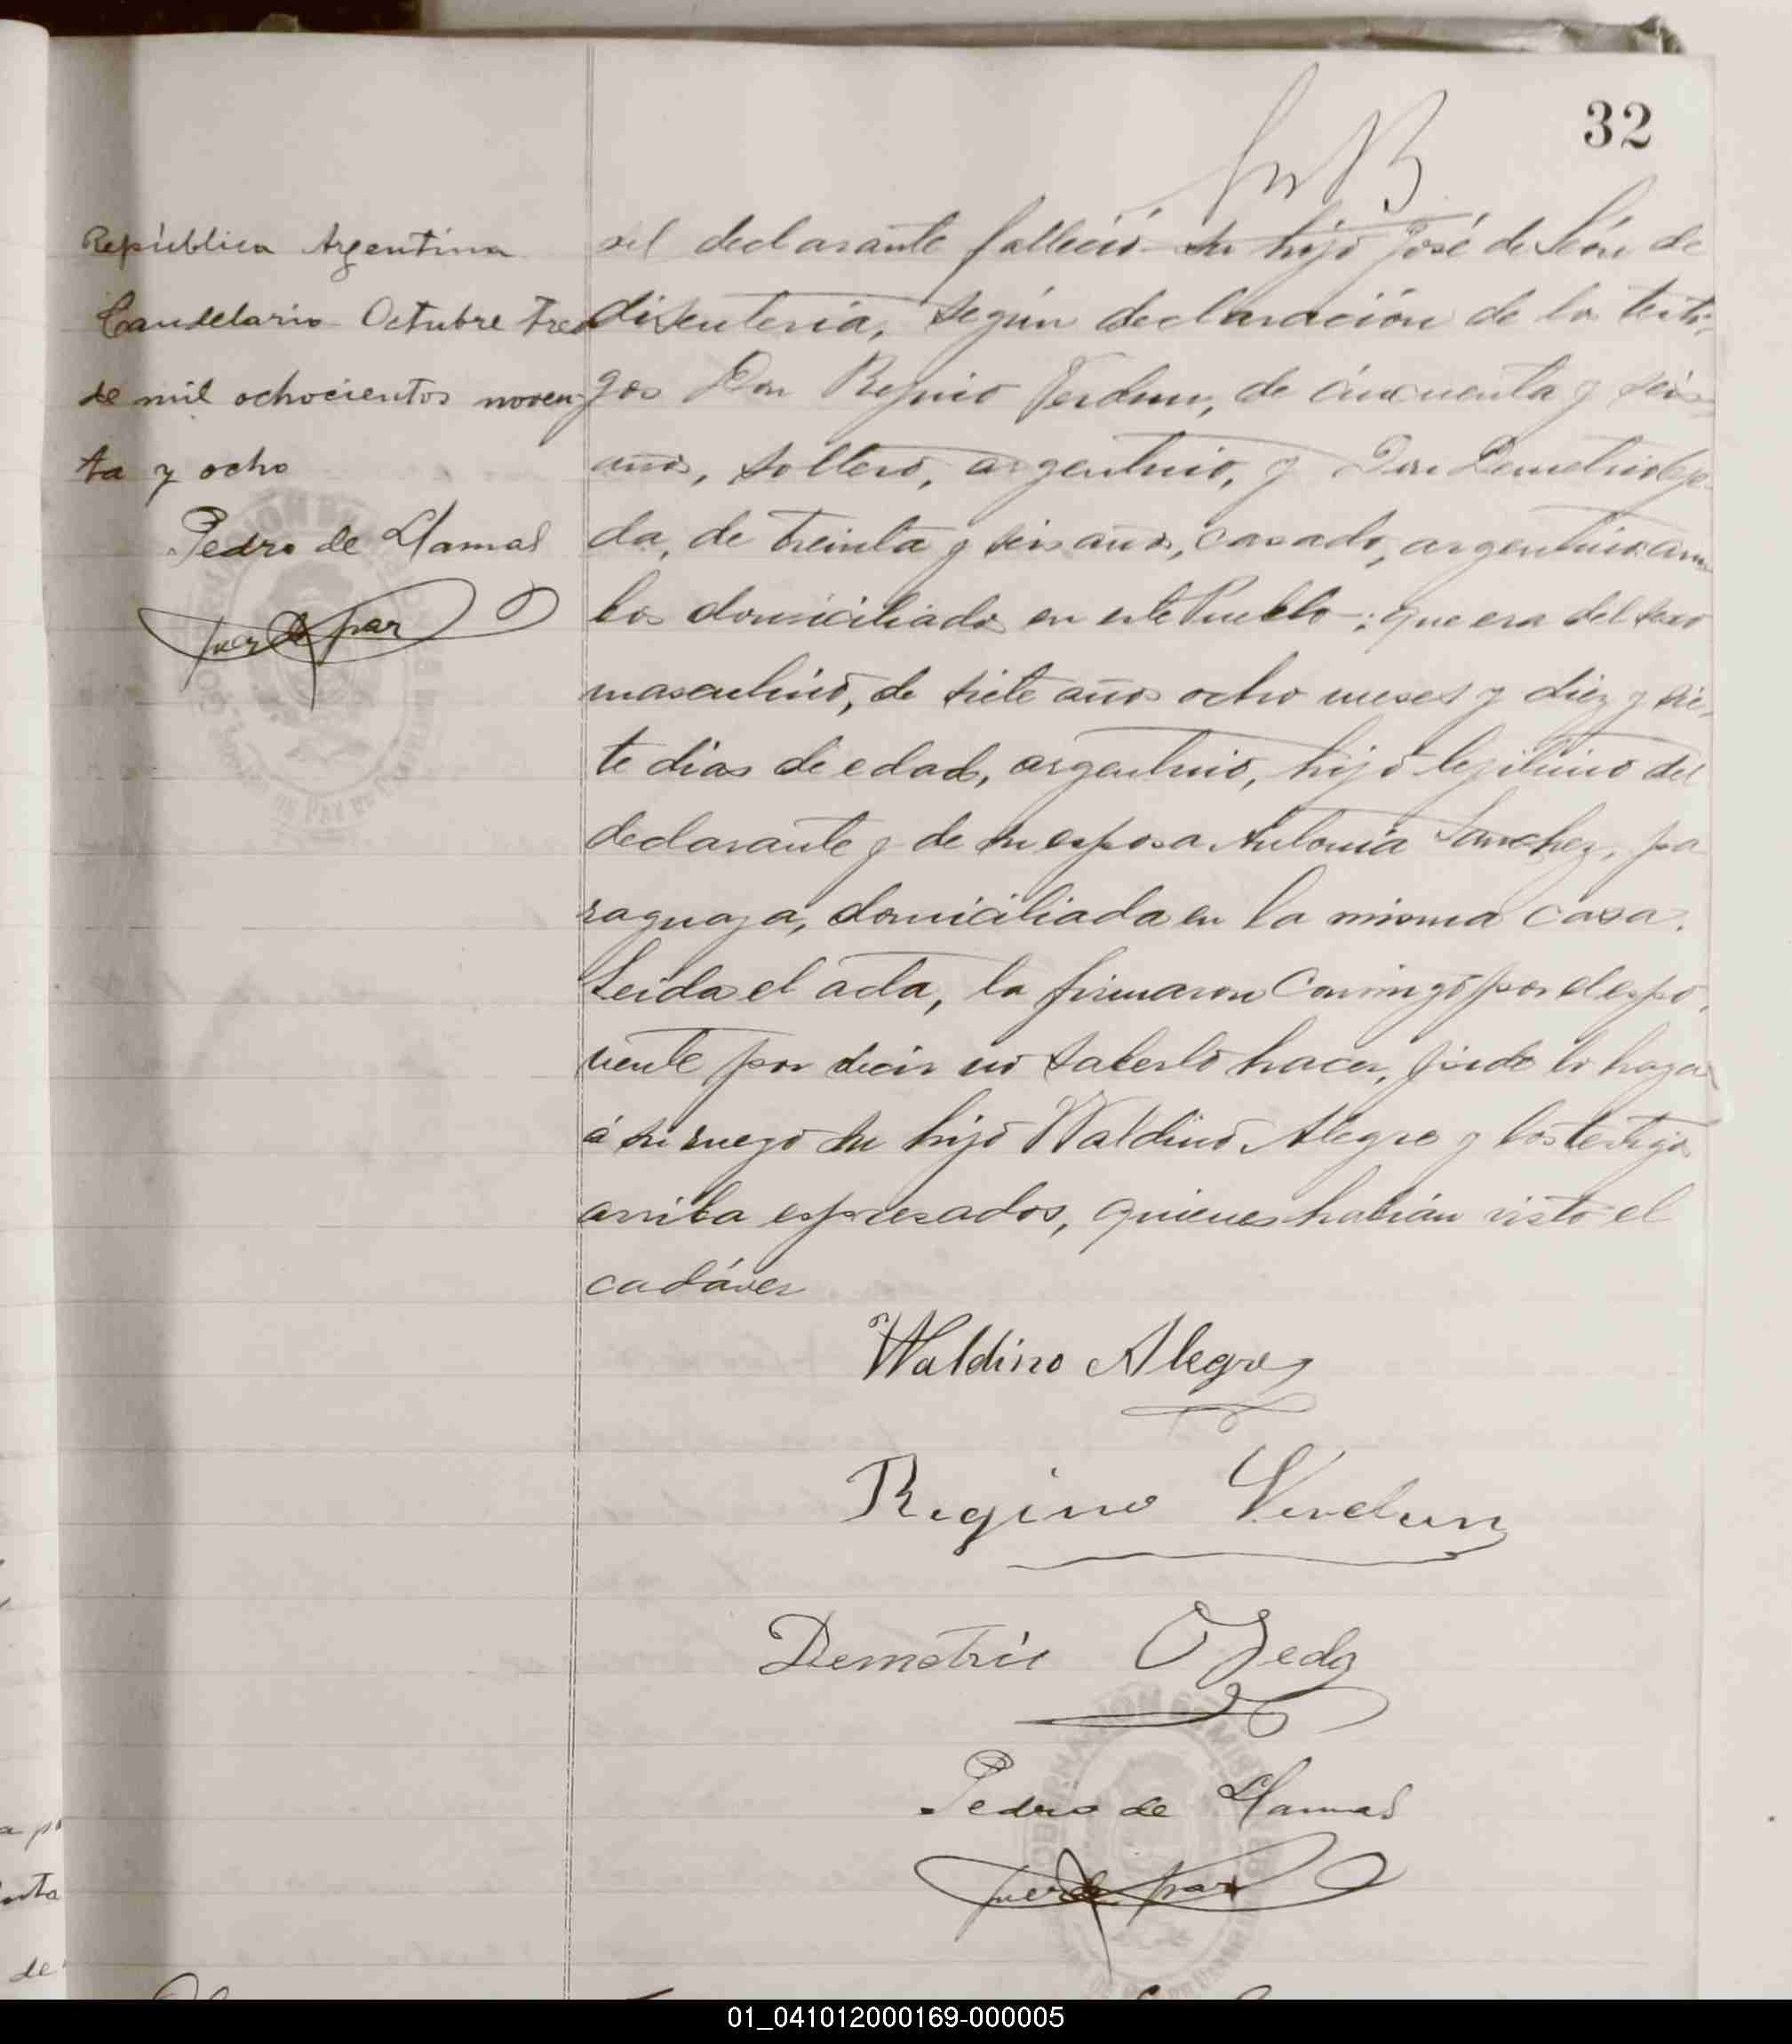 32
República Argentina
Candelaria Octubre tres
de mil ochocientos noven-
ta y ocho
Pedro de Llamas
Juez de paz
del declarante falleció su hijo José de León de
disenteria, según declaración de los testi-
gos Don Regino Verdun, de cincuenta y seis
años, soltero, argentino, y Don Demetrio Oje-
da, de treinta y seis años, casado, argentino, am-
bos domiciliados en este Pueblo; que era del sexo
masculino, de siete años ocho meses y diez y sie-
te dias de edad, argentino, hijo lejitimo del
declarante y de su esposa Antonia Sanchez, pa-
raguaya, domiciliada en la misma casa.
Leida el acta, la firmaron conmigo por el espo-
nente por decir no saberlo hacer, pide lo haga
á su ruego su hijo Waldino Alegre y los testigos
arriba espresados, quienes habían visto el
cadáver
Waldino Alegre
Regino Verdun
Demetrio Ojeda
Pedro de Llamas
Juez de paz
01_041012000169-000005